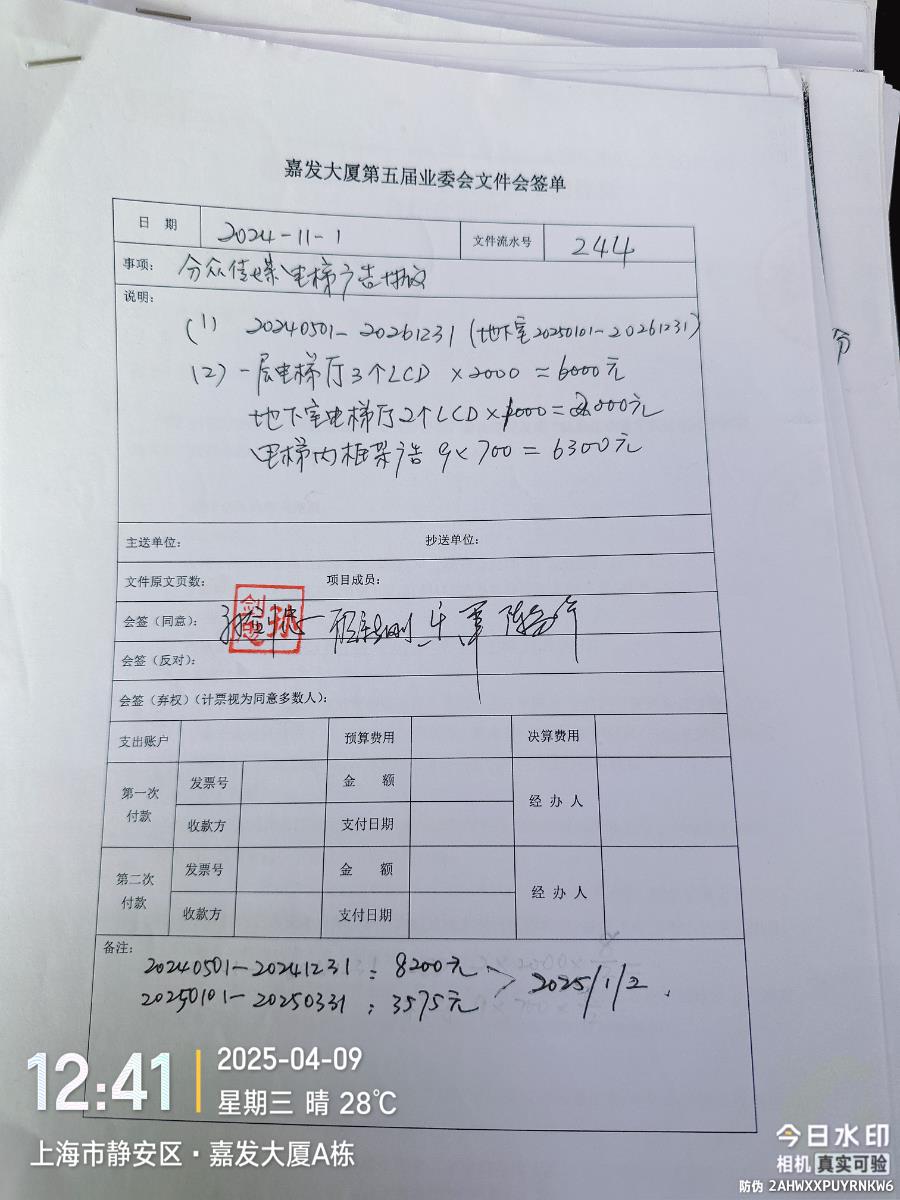 嘉发大厦第五届业委会文件会签单
日 期 2024-11-1 文件流水号 244
事项: 分众传媒电梯广告
说明:
(1) 20240501-20261231 (地下室20250101-20261231)
(2) 一层电梯厅3个LCD ×2000 = 6000元
地下室电梯厅2个LCD×1000=2000元
电梯内框架广告 9×700 = 6300元
分
主送单位: 抄送单位:
文件原文页数: 项目成员:
会签(同意):
会签(反对):
会签(弃权)(计票视为同意多数人):
支出账户 预算费用 决算费用
第一次付款 发票号 金 额 经 办 人
收款方 支付日期
第二次付款 发票号 金 额 经 办 人
收款方 支付日期
备注:
20240501-20241231: 8200元 > 2025/1/2.
20250101-20250331: 3575元
12:41 2025-04-09
星期三 晴 28℃
上海市静安区·嘉发大厦A栋
今日水印
相机 真实可验
防伪 2AHWXXPUYRNKW6